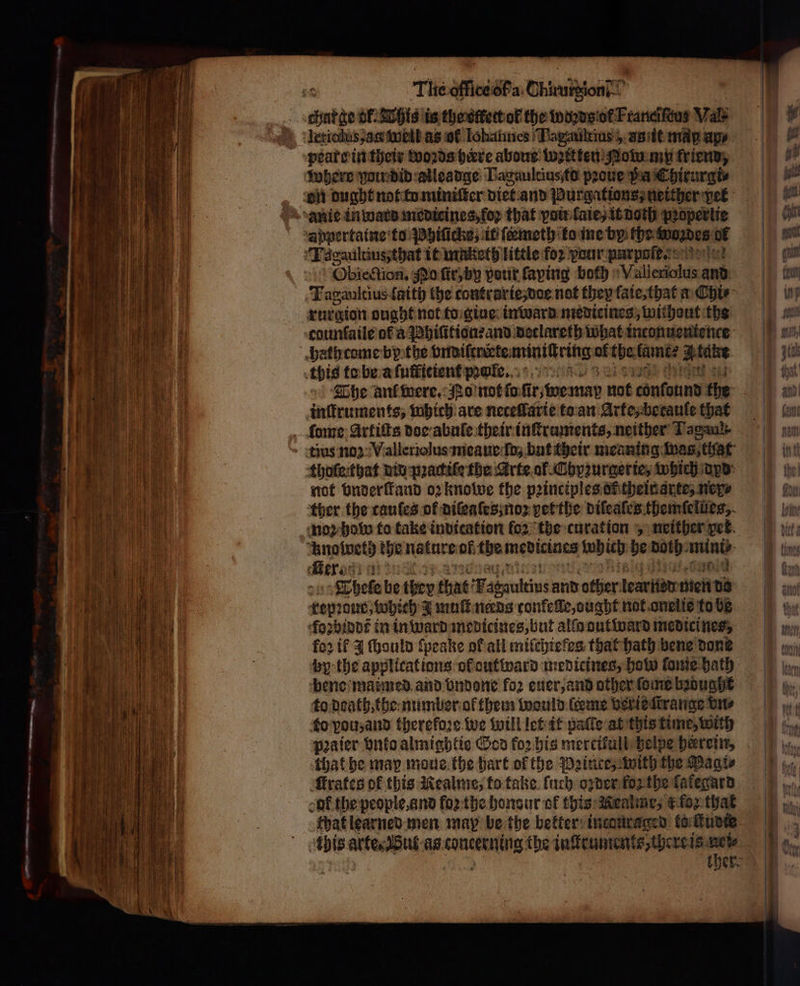 The office of a Chirurgion.
charge of. This is the effect of the words of Franciscus Val-
leriolus, as well as of Iohannes Tagaultius, as it may ap-
peare in their words here aboue written. Now my friend,
where you did alleadge Tagaultius, to proue ẏ a Chirurgi-
on ought not to minister diet and Purgations, neither yet
anie inward medicines, for that you saie, it doth properlie
appertaine to Phisicke, it seemeth to me by the wordes of
Tagaultius, that it maketh little for your purpose.
Obiection. No sir, by your saying both Valleriolus and
Tagaultius saith the contrarie, doe not they saie, that a Chi-
rurgion ought not to giue inward medicines, without the
counsaile of a Phisition, and declareth what inconuenience
hath come by the vndiscrete ministring of the same? I take
this to be a sufficient proofe.
The answere. No not so sir, we may not confound the
instruments, which are necessarie to an Arte, because that
some Artists doe abuse their instruments, neither Tagaul-
tius nor Valleriolus meane so, but their meaning was, that
those that did practise the Arte of Chyrurgerie, which dyd
not vnderstand or knowe the principles of their arte, ney-
ther the causes of diseases, nor yet the diseases themselues,
nor how to take indication for the curation, neither yet
knoweth the nature of the medicines which he doth mini-
ster.
These be they that Tagaultius and other learned men do
reproue, which I must needs confesse, ought not onelie to be
forbidde in inward medicines, but also outward medicines,
for if I should speake of all mischiefes that hath bene done
by the applications of outward medicines, how some hath
bene maimed and vndone for euer, and other some brought
to death, the number of them would seeme verie strange vn-
to you, and therefore we will let it passe at this time, with
praier vnto almightie God for his mercifull helpe herein,
that he may moue the hart of the Prince, with the Magi-
strates of this Realme, to take such order for the safegard
of the people, and for the honour of this Realme, & for that
that learned men may be the better incouraged to studie
this arte. But as concerning the instruments, there is nei-
ther